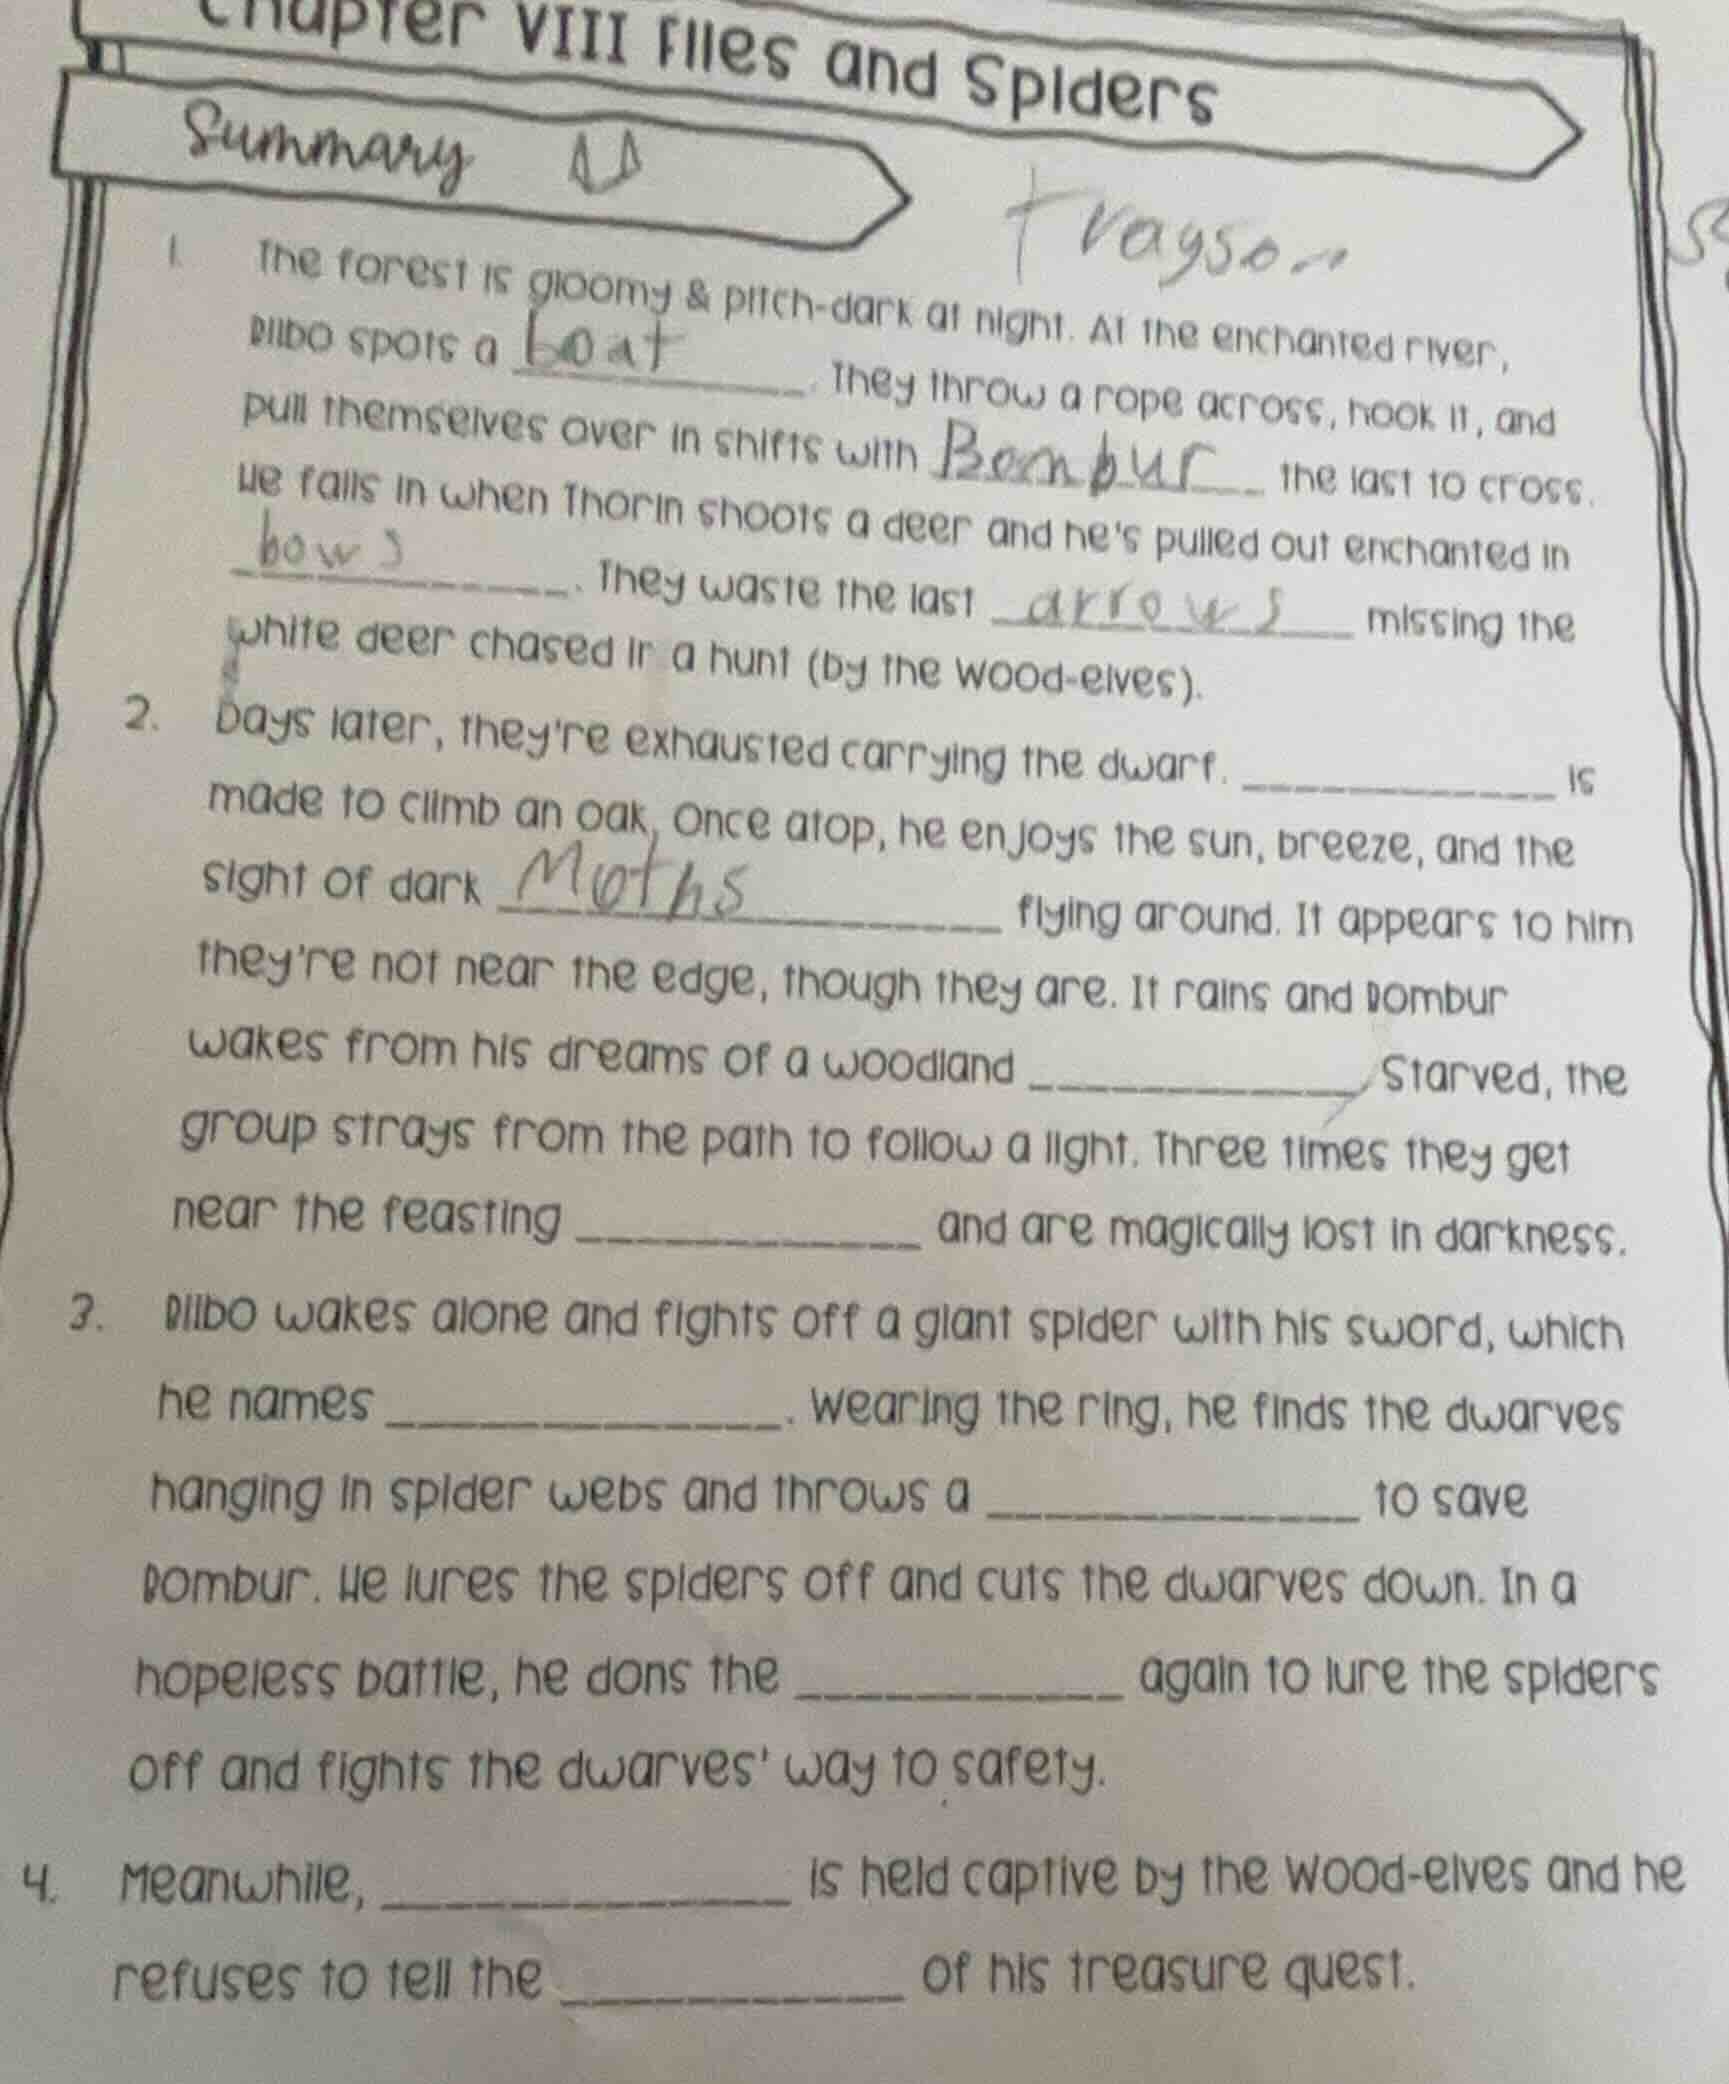 Chapter VIII Flies and Spiders
Summary
Trayson
1. The forest is gloomy & pitch-dark at night. At the enchanted river,
Bilbo spots a boat. They throw a rope across, hook it, and
pull themselves over in shifts with Bombur the last to cross.
He falls in when Thorin shoots a deer and he's pulled out enchanted in
bows. They waste the last arrows missing the
white deer chased in a hunt (by the Wood-elves).
2. Days later, they're exhausted carrying the dwarf. ____________ is
made to climb an oak, Once atop, he enjoys the sun, breeze, and the
sight of dark Moths flying around. It appears to him
they're not near the edge, though they are. It rains and Bombur
wakes from his dreams of a woodland ____________ Starved, the
group strays from the path to follow a light. Three times they get
near the feasting ____________ and are magically lost in darkness.
3. Bilbo wakes alone and fights off a giant spider with his sword, which
he names ____________. Wearing the ring, he finds the dwarves
hanging in spider webs and throws a ____________ to save
Bombur. He lures the spiders off and cuts the dwarves down. In a
hopeless battle, he dons the ____________ again to lure the spiders
off and fights the dwarves' way to safety.
4. Meanwhile, ____________ is held captive by the Wood-elves and he
refuses to tell the ____________ of his treasure quest.